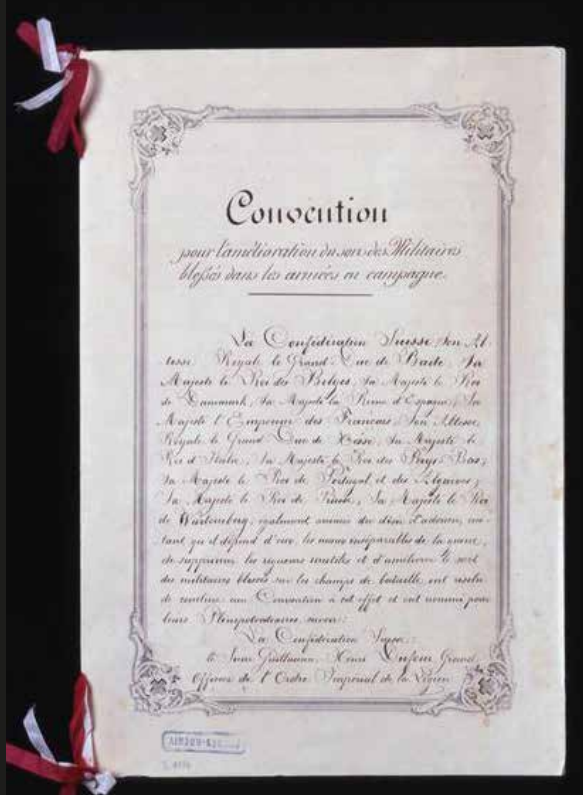 Convention
pour l'amélioration du sort des Militaires
blessés dans les armées en campagne
La Confédération Suisse, Son Al-
tesse Royale le Grand-Duc de Bade, Sa
Majesté le Roi des Belges, Sa Majesté le Roi
de Danemark, Sa Majesté la Reine d'Espagne, Sa
Majesté l'Empereur des Français, Son Altesse
Royale le Grand Duc de Hesse, Sa Majesté le
Roi d'Italie, Sa Majesté le Roi des Pays-Bas,
Sa Majesté le Roi de Portugal et des Algarves,
Sa Majesté le Roi de Prusse, Sa Majesté le Roi
de Würtemberg, également animés du désir d'adoucir, au-
tant qu'il dépend d'eux, les maux inséparables de la guerre,
de supprimer les rigueurs inutiles et d'améliorer le sort
des militaires blessés sur les champs de bataille, ont résolu
de conclure une Convention à cet effet et ont nommé pour
leurs Plénipotentiaires, savoir:
La Confédération Suisse:
le Sieur Guillaume Henri Dufour, Grand
Officier de l'Ordre Impérial de la Légion